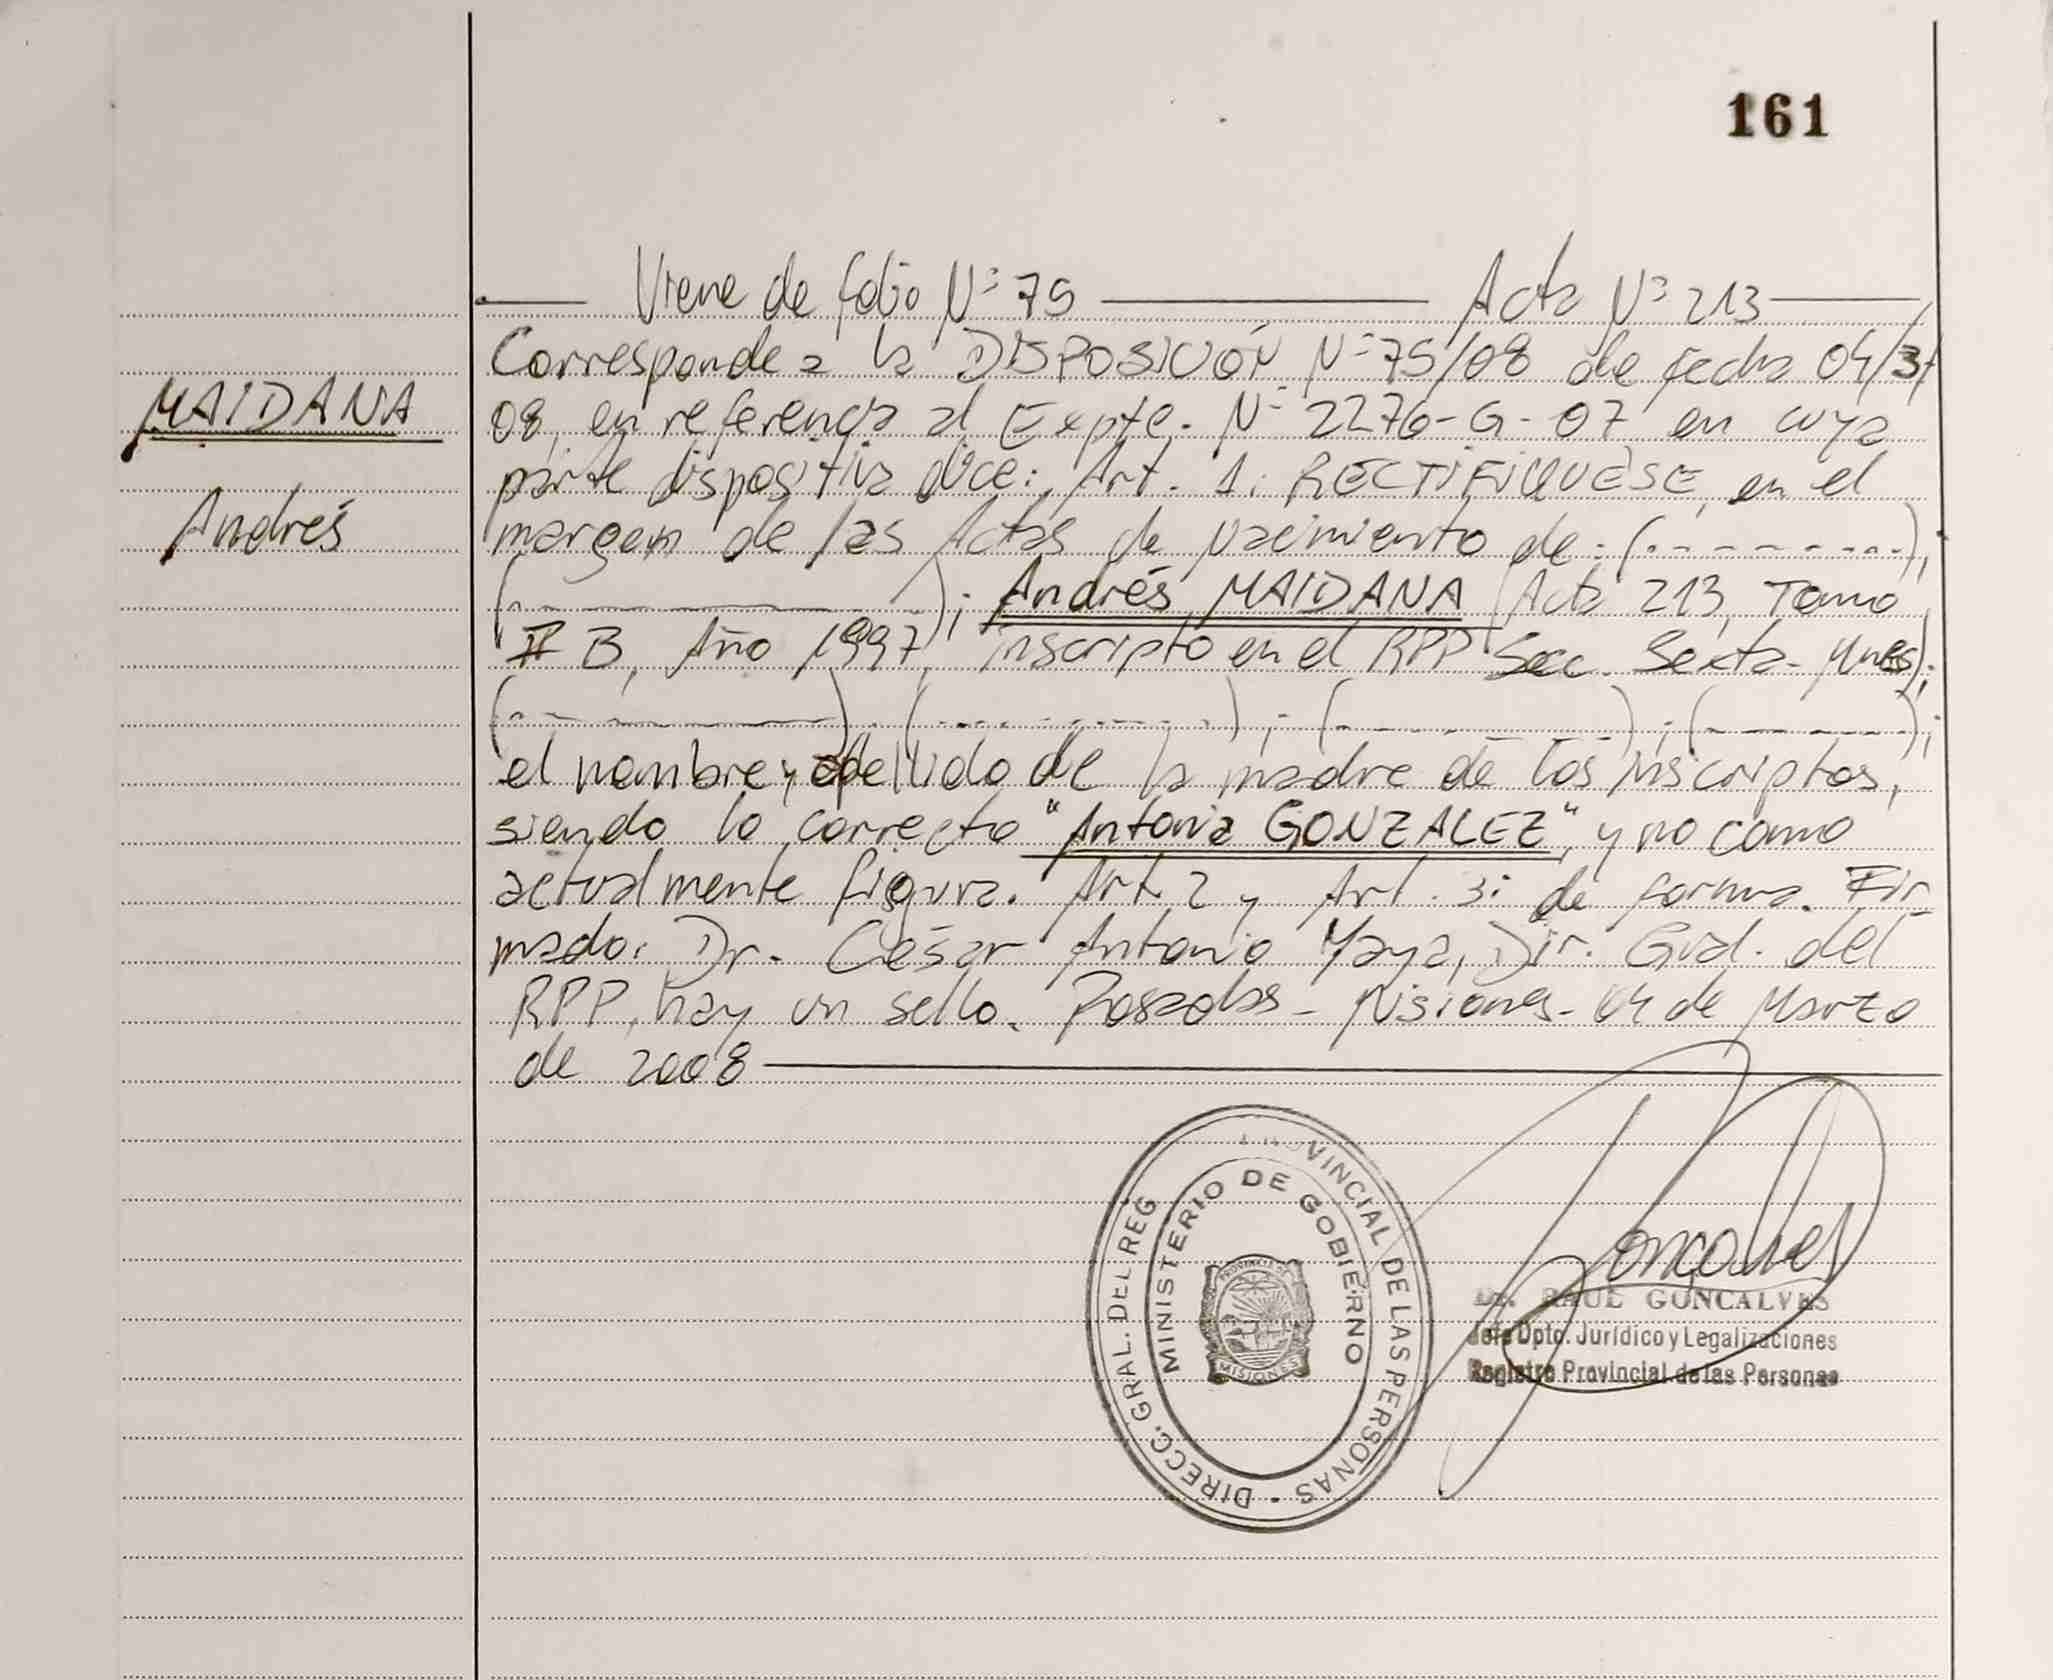 161
Viene de folio Nº 75 Acta Nº 213
Corresponde a la DISPOSICIÓN Nº 75/08 de fecha 04/3/
08, en referencia al Expte. Nº 2276-G-07 en cuya
parte dispositiva dice: Art. 1: RECTIFIQUESE, en el
margen de las Actas de Nacimiento de: (- - - - - - - -);
(- - - - - -); Andrés MAIDANA (Acta 213, Tomo
II B, Año 1997, inscripto en el RPP Secc. Sexta- Mnes);
(- - - - - -); (- - - - - - - -); (- - - - - -); (- - - - - -);
el nombre y apellido de la madre de los inscriptos,
siendo lo correcto "Antonia GONZALEZ", y no como
actualmente figura. Art. 2 y Art. 3: de forma. Fir-
mado: Dr. César Antonio Maya, Dir. Gral. del
RPP, hay un sello. Posadas - Misiones - 04 de Marzo
de 2008
MAIDANA
Andrés
DIRECC. GRAL. DEL REG. PROVINCIAL DE LAS PERSONAS
MINISTERIO DE GOBIERNO
PROVINCIA DE
MISIONES
Goncalves
Dr. RAUL GONCALVES
Jefe Dpto. Jurídico y Legalizaciones
Registro Provincial de las Personas